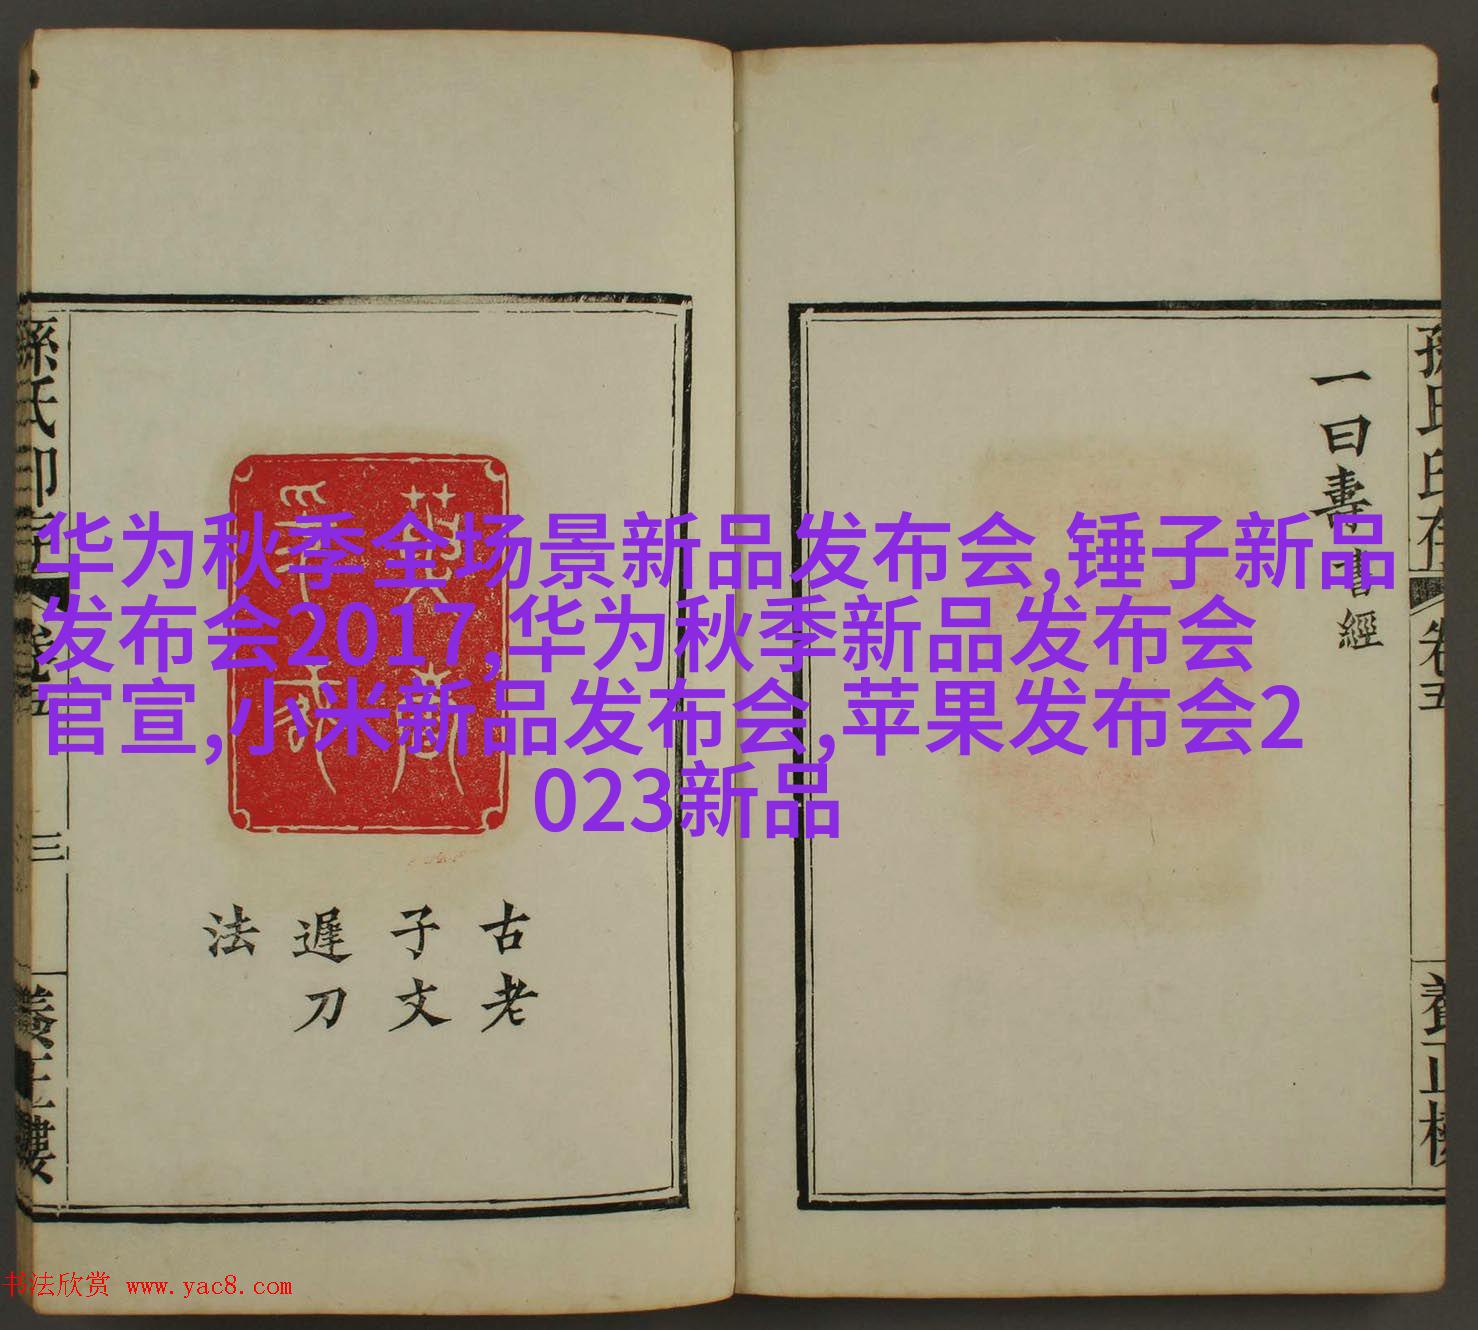 华为秋季全场景新品发布会,锤子新品
发布会2017,华为秋季新品发布会
官宣,小米新品发布会,苹果发布会2
023新品
一曰壽
書經
卷五
養正樓
古老
子文
遲刀
法
孫氏印
卷五
三
養正樓
书法欣赏 www.yac8.com